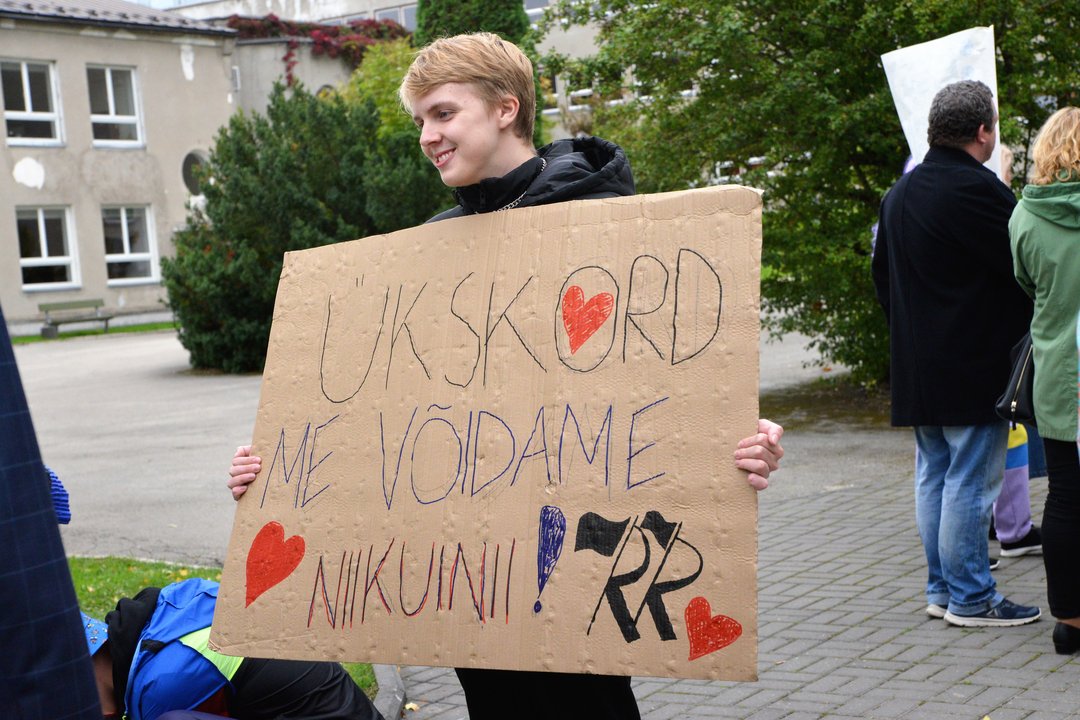 ÜKSKORD
ME VÕIDAME
NIIKUINII! RR